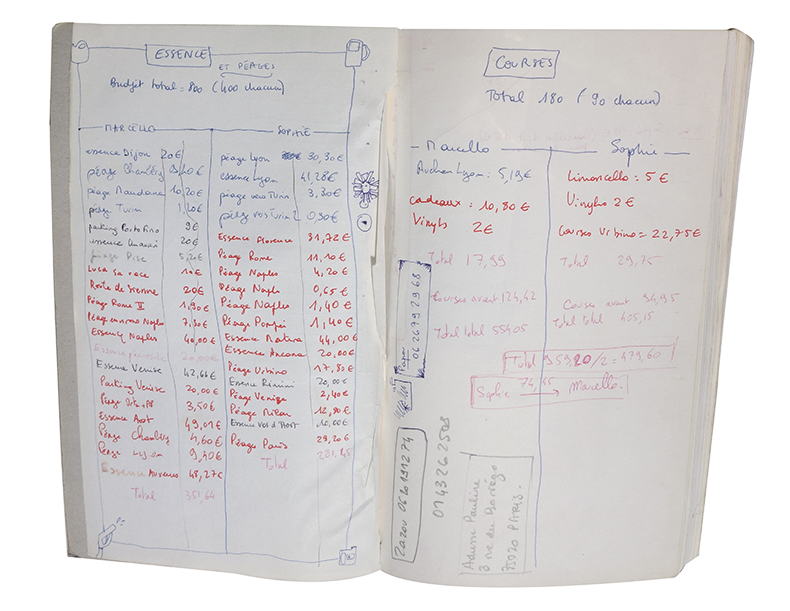 ESSENCE
ET PÉAGES
Budget total = 800 (400 chacun)
MARCELLO
essence Dijon 20€
péage Chambéry
péage 10,20€
péage Turin
parking Portofino 9€
essence 20€
péage Pise 5,20€
Luca sa race 10€
Reste de Sienne 20€
Péage Rome II 1,90€
Péage environs Naples 7,30€
Essence Naples 40,00€
Essence 20,00€
Essence Venise 42,66€
Parking Venise 20,00€
Péage 3,50€
Essence Aost 49,01€
Péage Chambéry 4,60€
Péage Lyon 9,40€
Essence Auxerres 48,27€
Total 351,64
SOPHIE
péage Lyon 30,30€
essence Lyon 41,28€
péage vers Turin 3,30€
péage vers Turin 2 0,90€
Essence Florence 31,72€
Péage Rome 11,10€
Péage Naples 4,20€
Péage Naples 0,65€
Péage Naples 1,40€
Péage Pompéi 1,40€
Essence Matera 44,00€
Essence Ancona 20,00€
Péage Urbino 17,80€
Essence Rimini 20,00€
Péage Venise 2,40€
Péage Milan 12,80€
Essence Val d'Aost 10,00€
Péage Paris 29,20€
Total 281,45
COURSES
Total 180 (90 chacun)
Marcello
Auchan Lyon : 5,19€
cadeaux : 10,80€
Vinyls 2€
Total 17,99
Courses avant 124,42
Total total 554,05
Sophie
Limoncello : 5€
Vinyls 2€
Courses Urbino = 22,75€
Total 29,75
Courses avant 94,95
Total total 405,15
Total 959,20/2 = 479,60
Sophie 74,45 → Marcello.
Papa : 0620792968
Zazou 0620191274
0143262508
Adresse Pauline
3 rue du Borrégo
75020 PARIS.